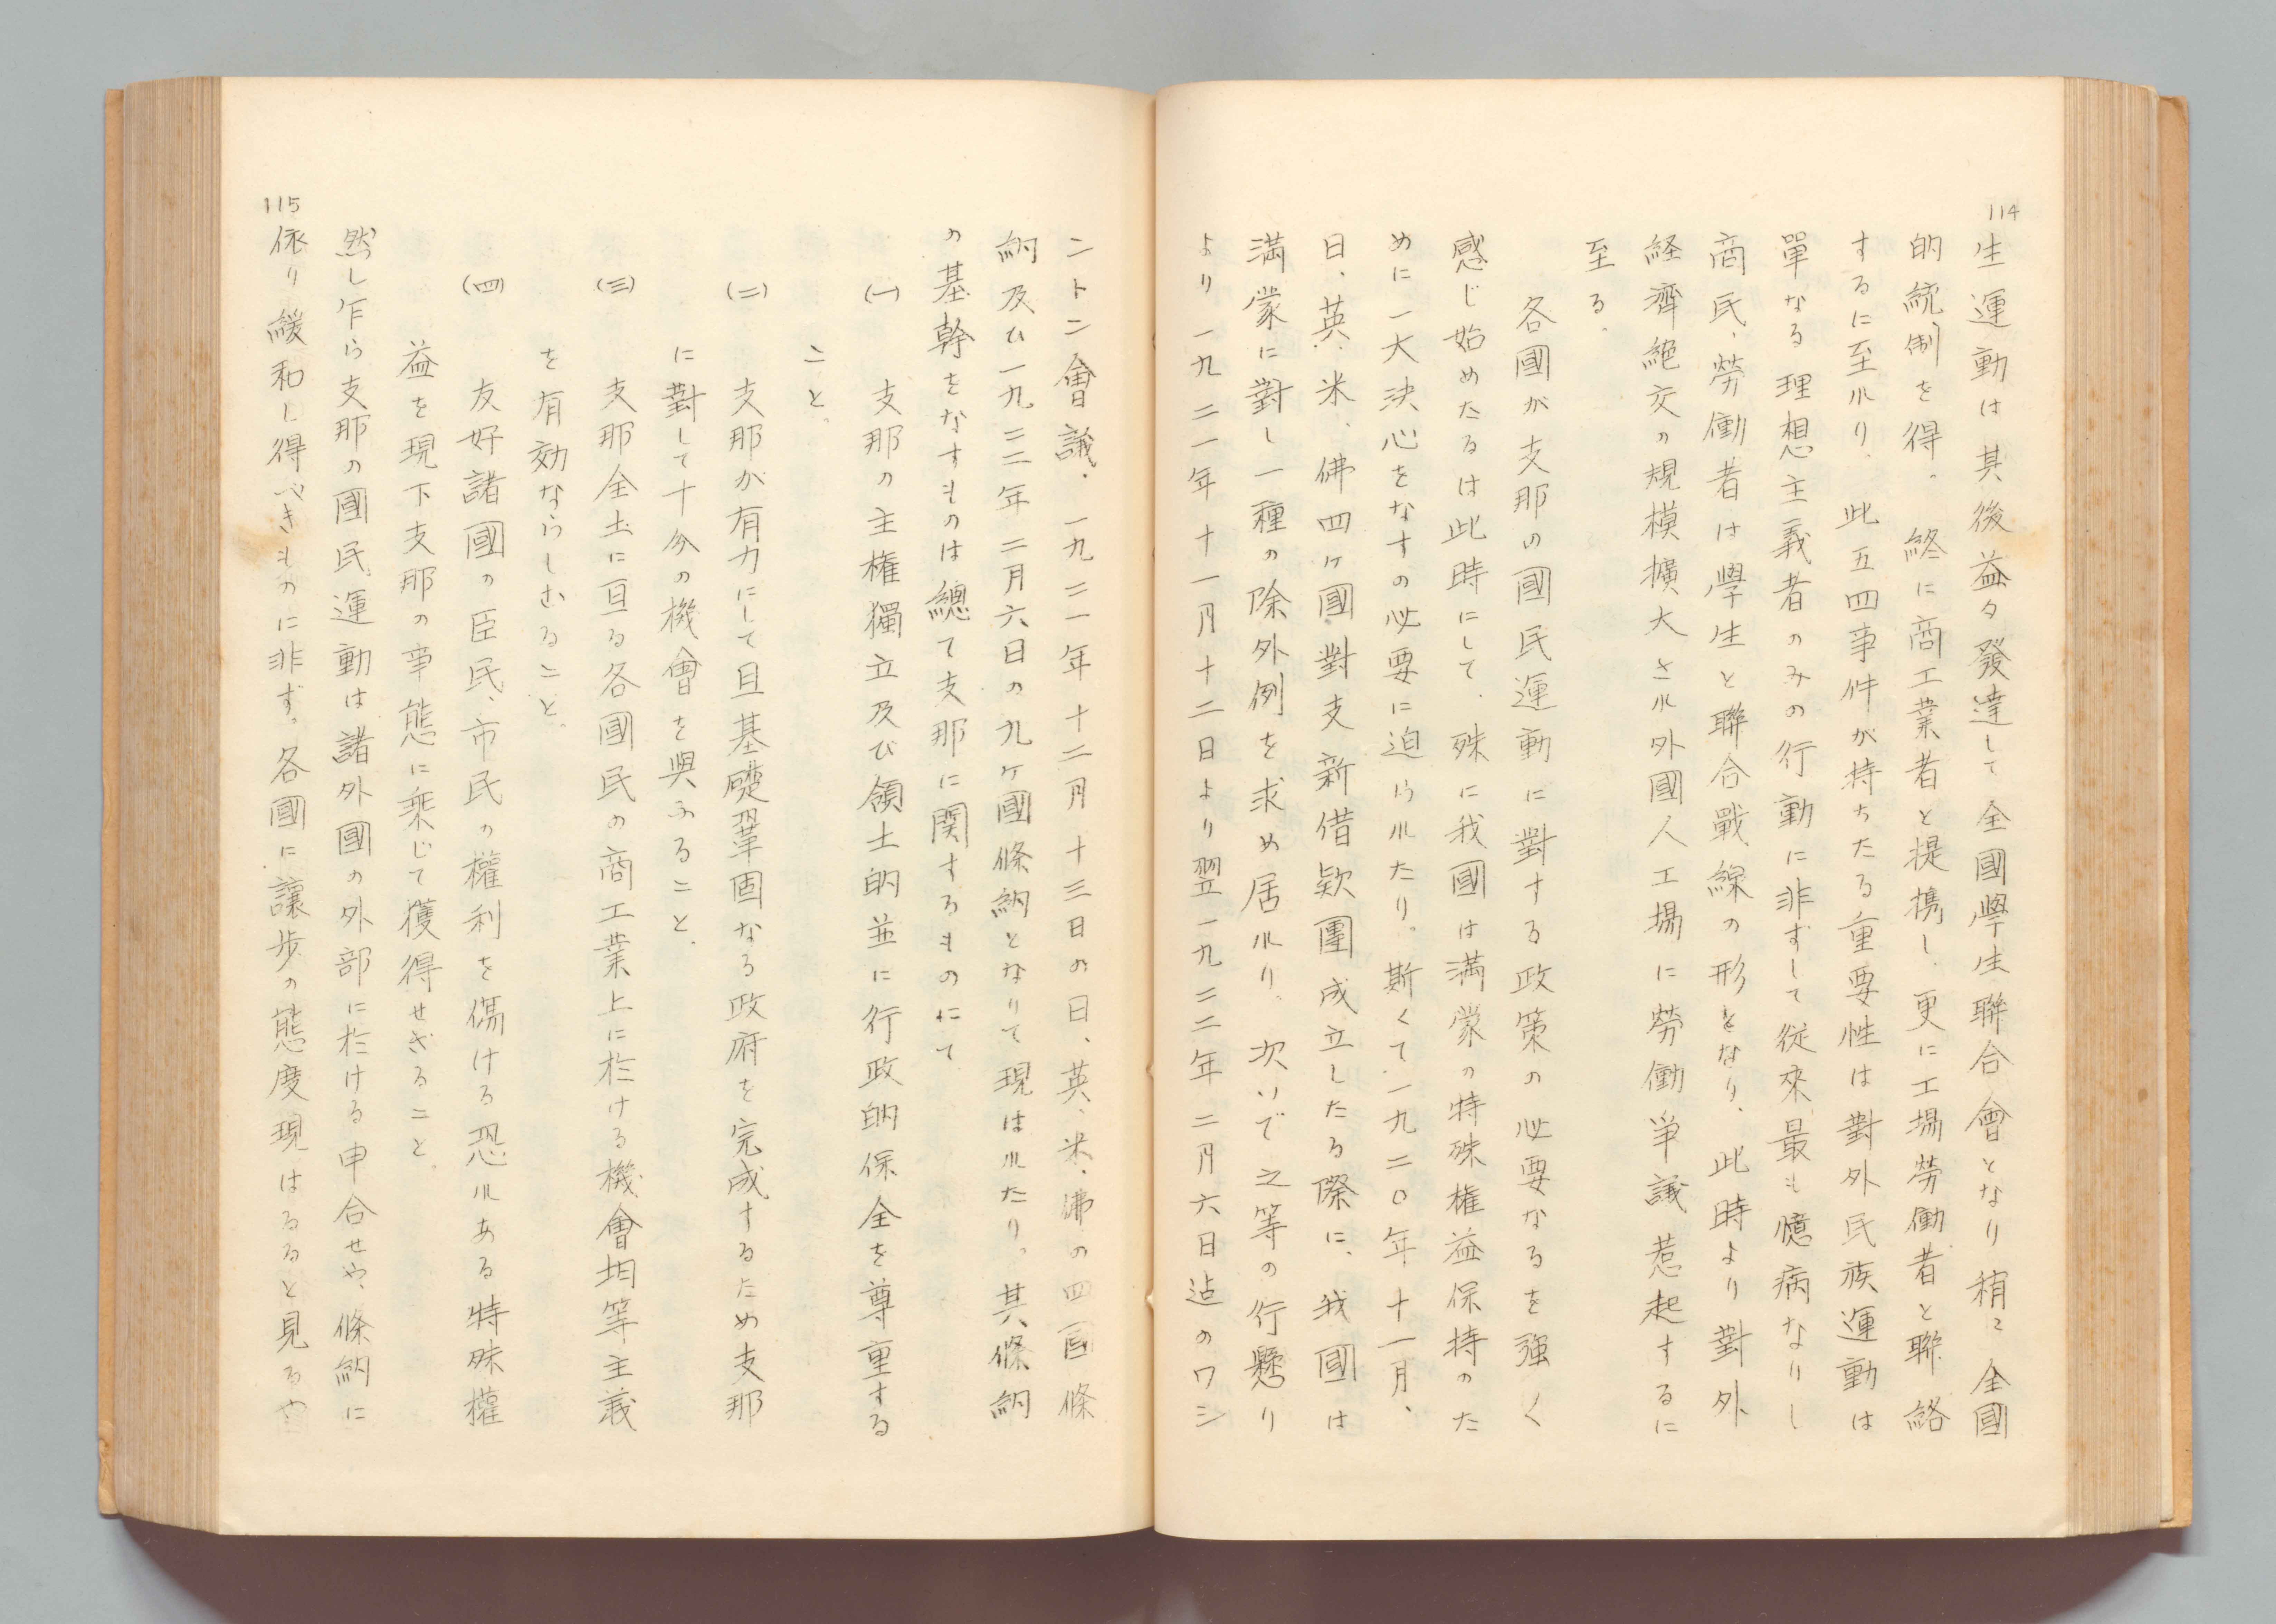 114
生運動は其後益々發達して全國學生聯合會となり稍〻全國
的統制を得、終に商工業者と提携し、更に工場勞働者と聯絡
するに至れり。此五四事件が持ちたる重要性は對外民族運動は
單なる理想主義者のみの行動に非ずして従來最も憶病なりし
商民、勞働者は學生と聯合戰線の形をなり、此時より對外
経濟絶交の規模擴大され外國人工場に勞働爭議惹起するに
至る。
各國が支那の國民運動に對する政策の必要なるを強く
感じ始めたるは此時にして、殊に我國は満蒙の特殊権益保持のた
めに一大決心をなすの必要に迫られたり。斯くて一九二〇年十一月、
日、英、米、佛四ヶ國對支新借欵團成立したる際に、我國は
満蒙に對し一種の除外例を求め居れり、次いで之等の行懸り
より一九二一年十一月十二日より翌一九二二年二月六日迠のワシ
ントン會議、一九二一年十二月十三日の日、英、米、沸の四國條
納及ひ一九二二年二月六日の九ヶ國條納となりて現はれたり。其條納
の基幹をなすものは總て支那に関するものにて
(一) 支那の主権獨立及び領土的並に行政的保全を尊重する
こと。
(二) 支那が有力にして且基礎鞏固なる政府を完成するため支那
に對して十分の機會を與ふること、
(三) 支那全土に亘る各國民の商工業上に於ける機會均等主義
を有効ならしむること。
(四) 友好諸國の臣民、市民の權利を傷ける恐れある特殊權
益を現下支那の事態に乘じて獲得せざること。
然し乍ら支那の國民運動は諸外國の外部に於ける申合せや、條納に
依り緩和し得べきものに非ず。各國に讓歩の態度現はるると見るや
115